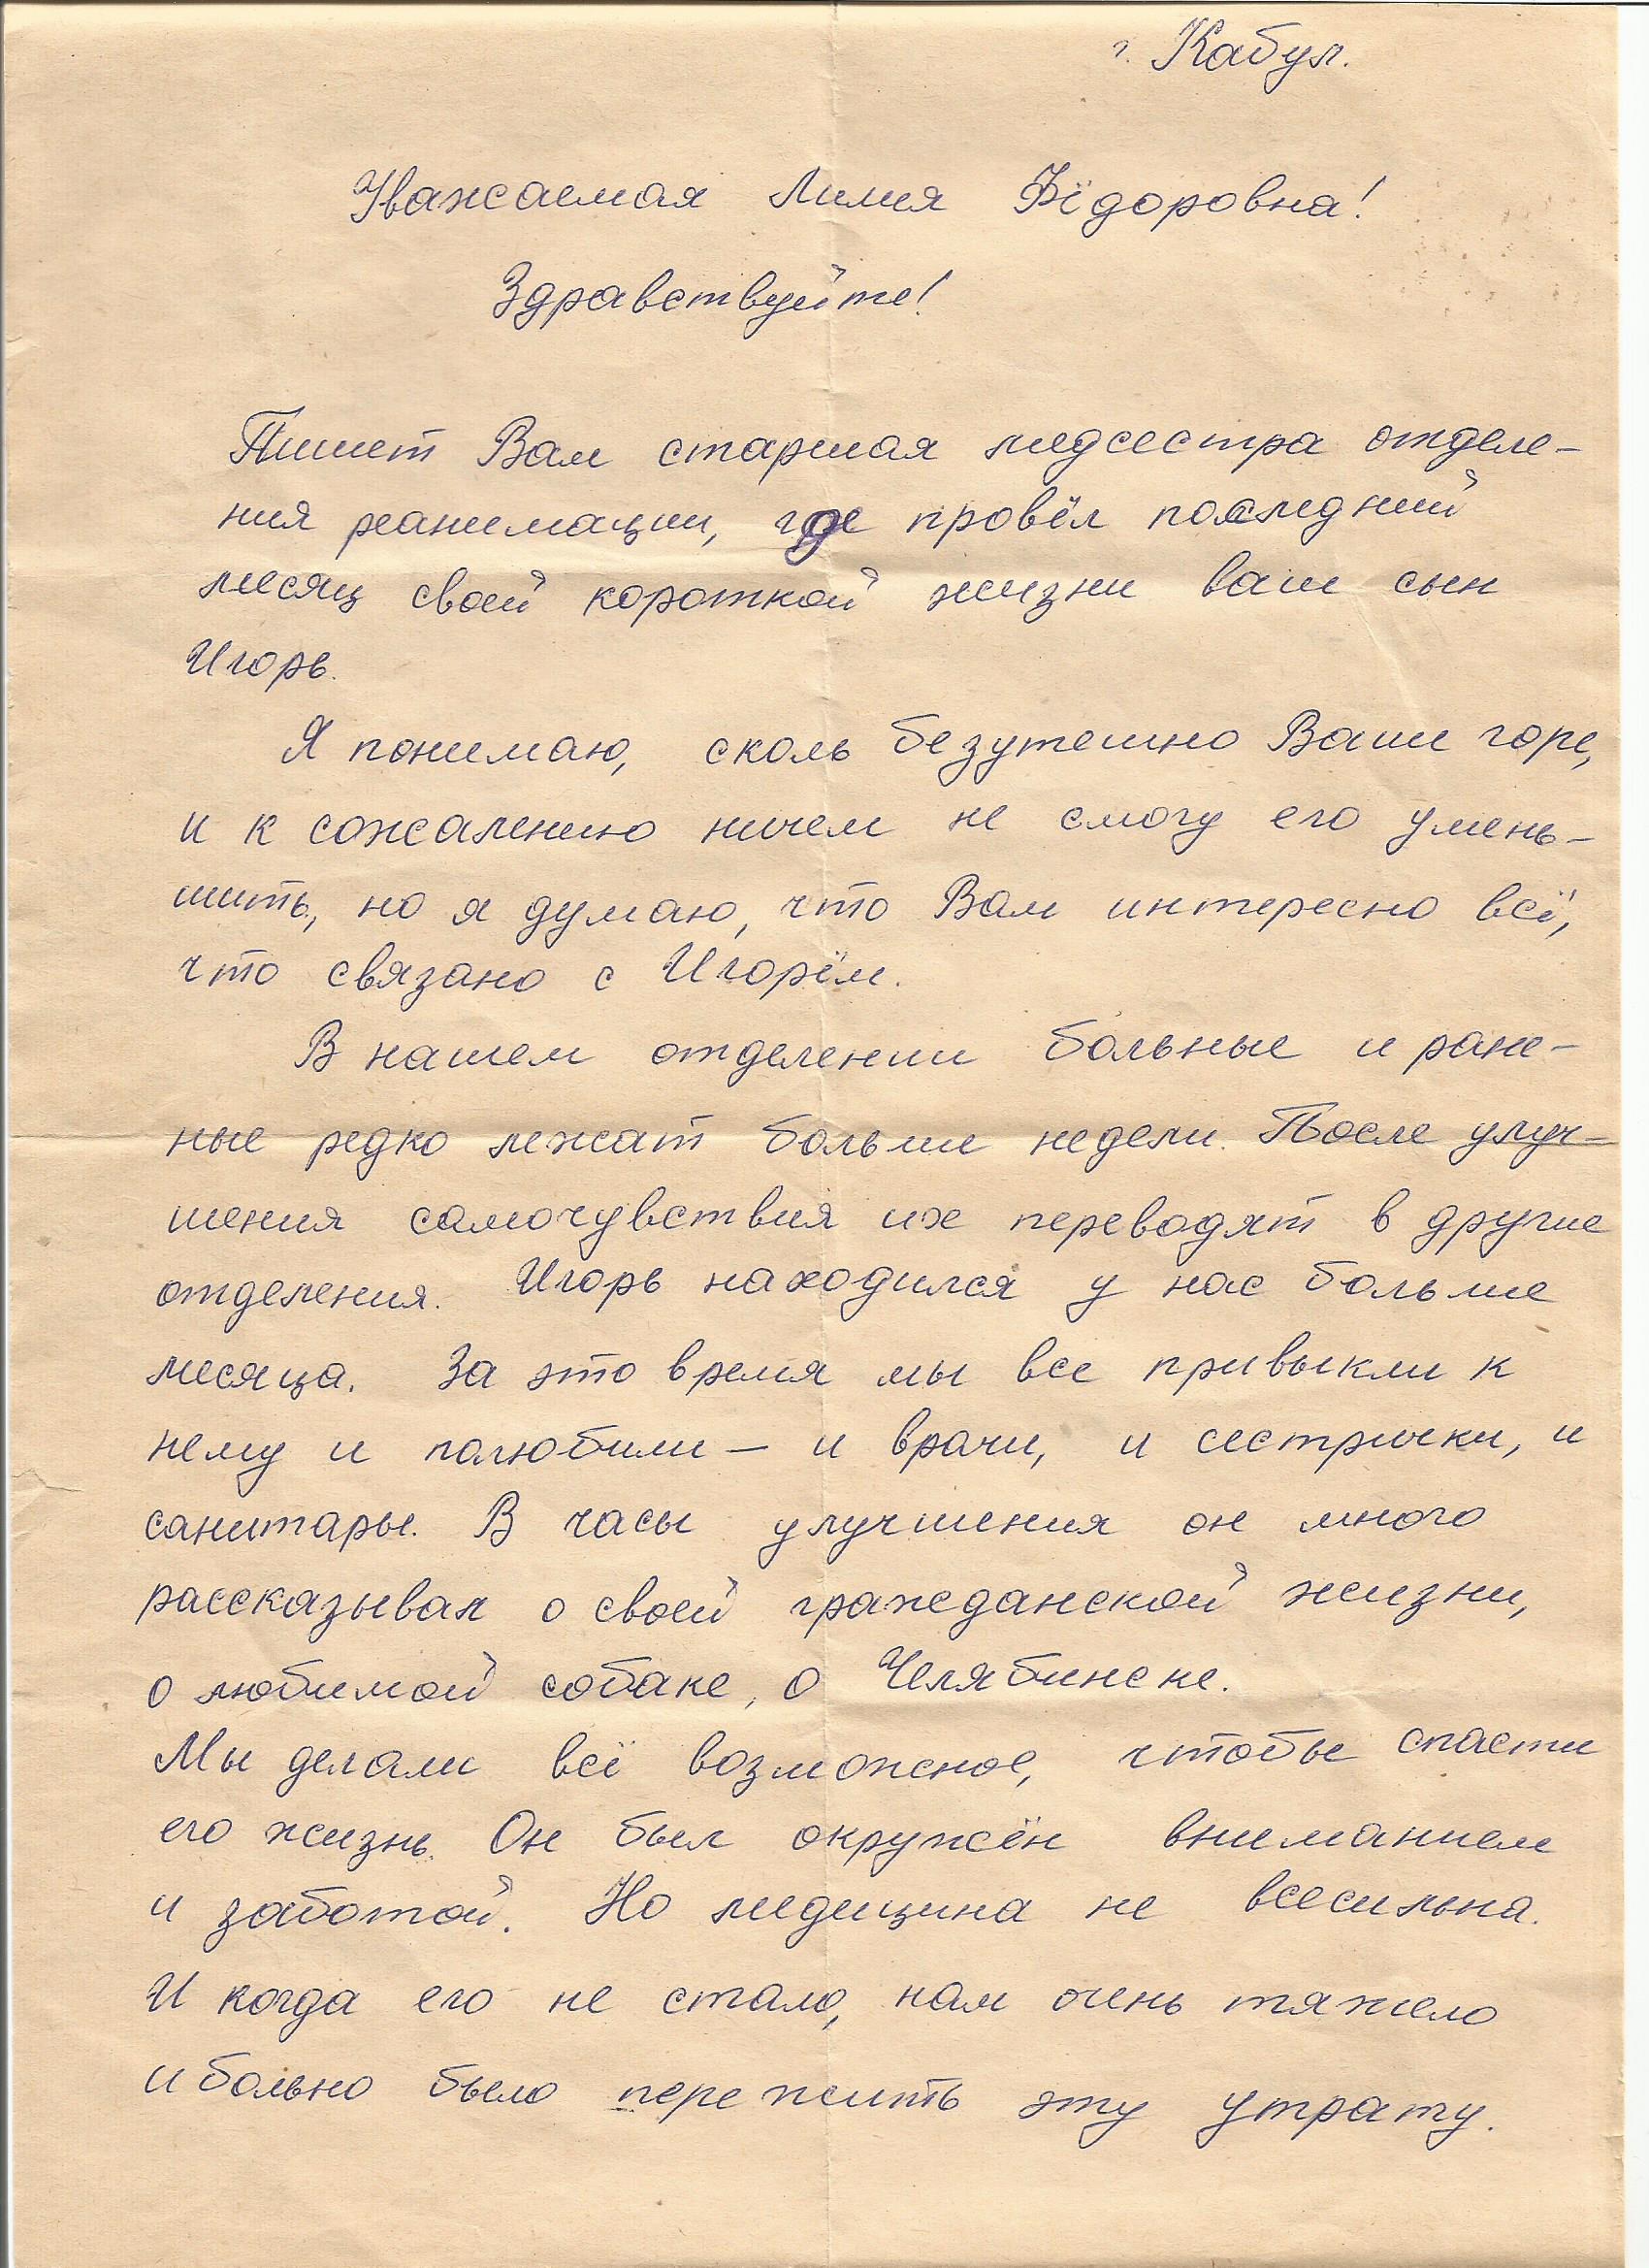 г. Кабул.
Уважаемая Лилия Фёдоровна!
Здравствуйте!
Пишет Вам старшая медсестра отделе-
ния реанимации, где провёл последний
месяц своей короткой жизни ваш сын
Игорь.
Я понимаю, сколь безутешно Ваше горе,
и к сожалению ничем не смогу его умень-
шить, но я думаю, что Вам интересно всё,
что связано с Игорём.
В нашем отделении больные и ране-
ные редко лежат больше недели. После улуч-
шения самочувствия их переводят в другие
отделения. Игорь находился у нас больше
месяца. За это время мы все привыкли к
нему и полюбили – и врачи, и сестрички, и
санитары. В часы улучшения он много
рассказывал о своей гражданской жизни,
о любимой собаке, о Челябинске.
Мы делали всё возможное, чтобы спасти
его жизнь. Он был окружён вниманием
и заботой. Но медицина не всесильна.
И когда его не стало, нам очень тяжело
и больно было пережить эту утрату.